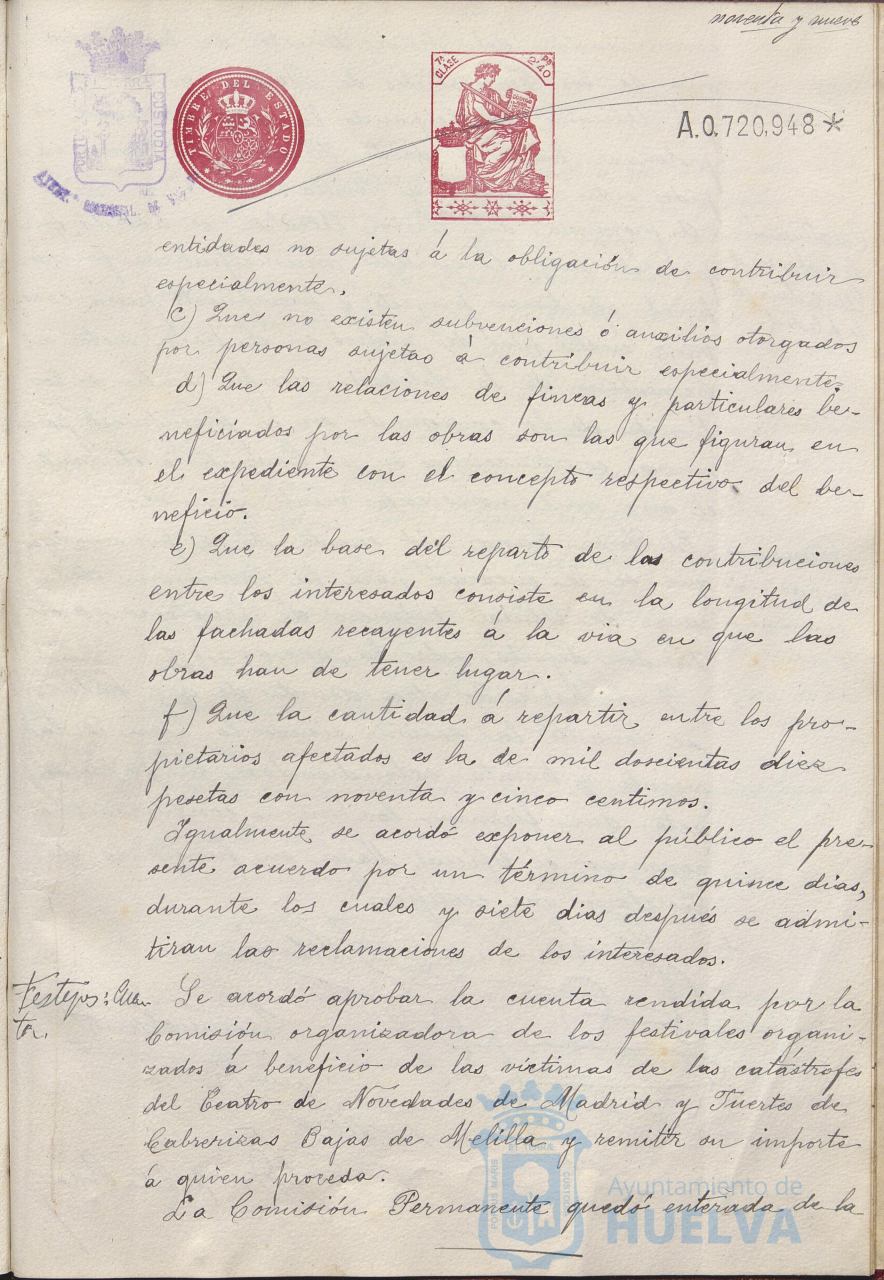 noventa y nueve
TIMBRE DEL ESTADO
7ª CLASE
2'40
A.0.720,948*
PORTUS
CUSTODIA
entidades no sujetas á la obligación de contribuir
especialmente.
c) Que no existen subvenciones ó auxilios otorgados
por personas sujetas á contribuir especialmente.
d) Que las relaciones de fincas y particulares be-
neficiados por las obras son las que figuran en
el expediente con el concepto respectivo del be-
neficio.
e) Que la base del reparto de las contribuciones
entre los interesados consiste en la longitud de
las fachadas recayentes á la via en que las
obras han de tener lugar.
f) Que la cantidad á repartir entre los pro-
pietarios afectados es la de mil doscientas diez
pesetas con noventa y cinco centimos.
Igualmente se acordó exponer al público el pre-
sente acuerdo por un término de quince dias,
durante los cuales y siete dias después se admi-
tiran las reclamaciones de los interesados.
Festejos: Cuen-
ta.
Se acordó aprobar la cuenta rendida por la
Comisión organizadora de los festivales organi-
zados á beneficio de las víctimas de las catástrofes
del Teatro de Novedades de Madrid y Fuertes de
Cabrerizas Bajas de Melilla y remitir su importe
á quien proceda.
La Comisión Permanente quedó enterada de la
Ayuntamiento de
HUELVA